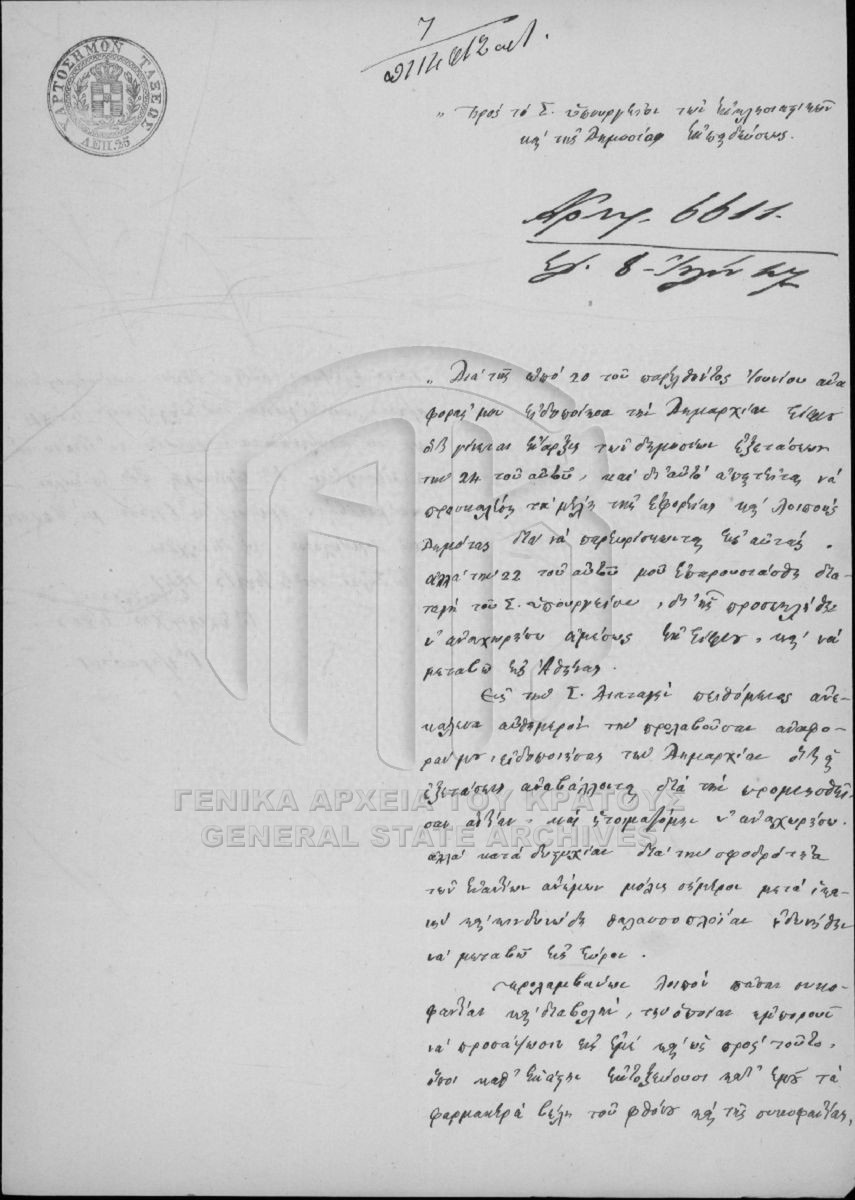 ΧΑΡΤΟΣΗΜΟΝ ΤΑΞΕΩΣ
ΛΕΠ. 25
7
„ Πρὸς τὸ Σ. ὑπουργεῖον τῶν Ἐκκλησιαστικῶν
καὶ τῆς Δημοσίας Ἐκπαιδεύσεως.
Αριθ. 6611.
8 Ἰουλίου 47
„ Διὰ τῆς ὑπὸ 20 τοῦ παρελθόντος Ἰουνίου ἀνα
φορᾶς μου εἰδοποίησα τὴν Δημαρχίαν Σίφνου
ὅτι γίνεται ἔναρξις τῶν δημοσίων ἐξετάσεων
τὴν 24 τοῦ αὐτοῦ, καὶ δι' αὐτὸ ἀπῄτειται νὰ
προσκαλέσῃ τὰ μέλη τῆς Ἐφορείας καὶ λοιποὺς
Δημότας διὰ νὰ παρευρίσκωνται εἰς αὐτάς.
ἀλλὰ τὴν 22 τοῦ αὐτοῦ μοῦ ἐπαρουσιάσθη δια
ταγὴ τοῦ Σ. ὑπουργείου, δι' ἧς προσεκλήθην
ν' ἀναχωρήσω ἀμέσως ἐκ Σίφνου, καὶ νὰ
μεταβῶ εἰς Ἀθήνας.
Εἰς τὴν Σ. Διαταγὴν πειθόμενος ἀνε
κάλεσα αὐθημερὸν τὴν προλαβοῦσαν ἀναφο
ράν μου, εἰδοποιήσας τὴν Δημαρχίαν ὅτι αἱ
ἐξετάσεις ἀναβάλλονται διὰ τὴν
σαν αἰτίαν, καὶ ἡτοιμαζόμην ν' ἀναχωρήσω.
ἀλλὰ κατὰ δυστυχίαν διὰ τὴν σφοδρότητα
τῶν ἐναντίων ἀνέμων μόλις σήμερον μετὰ
καὶ κινδυνώδη θαλασσοπλοΐαν ἠδυνήθην
νὰ μεταβῶ εἰς Σῦρον.
Προλαμβάνων λοιπὸν πᾶσαν συκο
φαντίαν καὶ διαβολὴν, τὴν ὁποίαν ἐμποροῦν
νὰ προσάψωσιν εἰς ἐμὲ καὶ ὡς πρὸς τοῦτο,
ὅσοι καθ' ἑκάστην ἐκτοξεύουσι κατ' ἐμοῦ τὰ
φαρμακερὰ βέλη τοῦ φθόνου καὶ τῆς συκοφαντίας,
ΓΕΝΙΚΑ ΑΡΧΕΙΑ ΤΟΥ ΚΡΑΤΟΥΣ
GENERAL STATE ARCHIVES